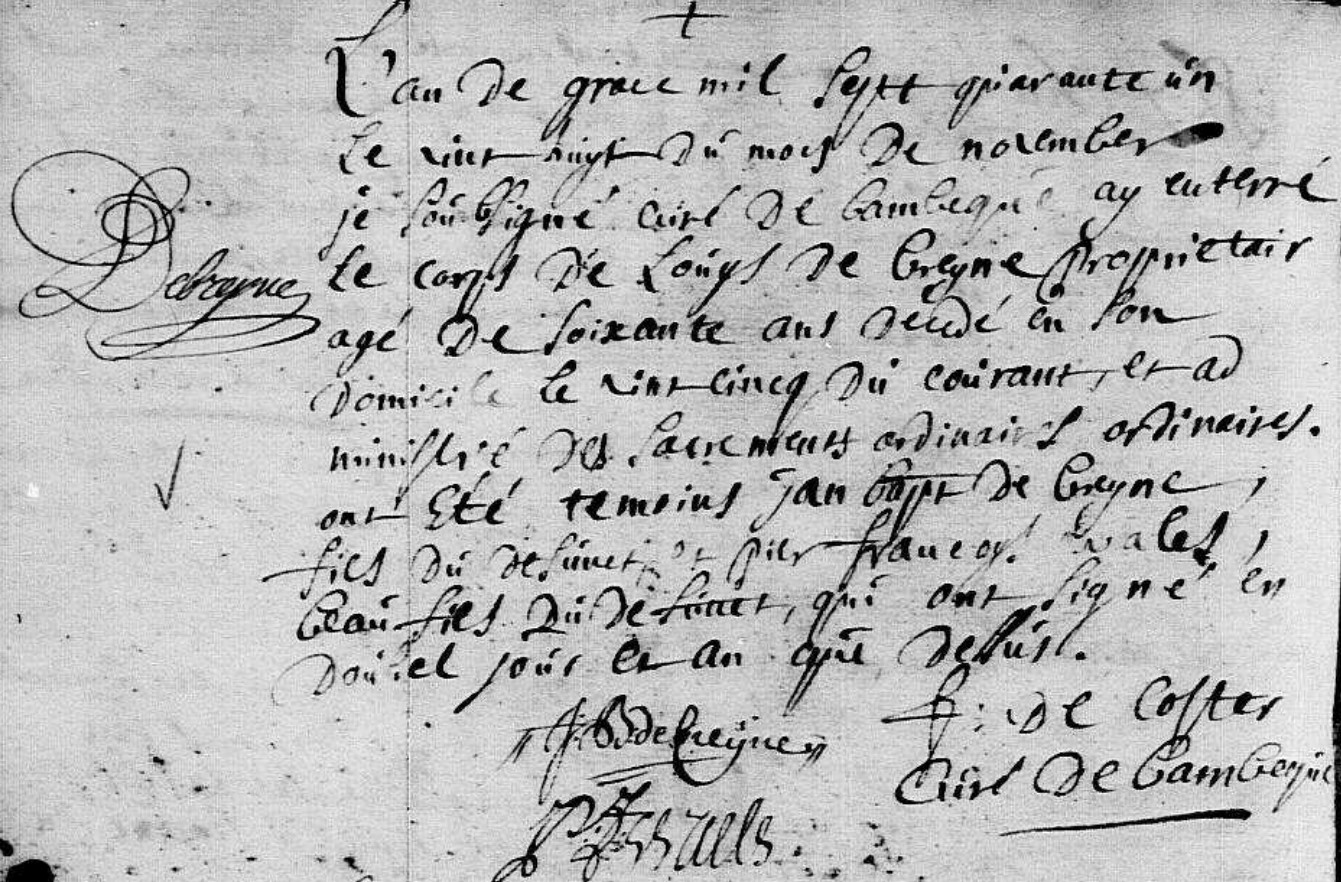 L'an de grace mil sept quarante un
le vint huyt du mois de november
je soubsigné curé de bambeque ay enterré
Debreyne
le corps de Louys de breyne proprietair
agé de soixante ans decedé en son
domicile le vint cincq du courant, et ad
ministré des sacrements ordinaires ordinaires.
ont été temoins jan bapt de breyne,
fils du defunct et pier francoys wales,
beau fils du defunct, qui ont signé en
doubel jour et an que dessus.
J. B. debreyne
f: de Coster
Curé de bambeque
P. F. walls